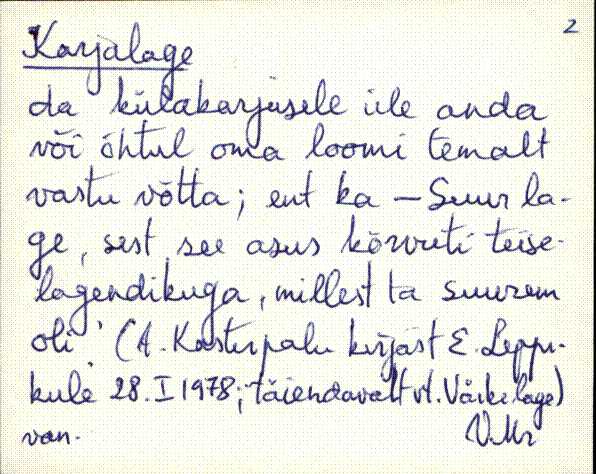 2
Karjalage
da külakarjusele üle anda
või õhtul oma loomi temalt
vastu võtta; ent ka – Suur la-
ge, sest see asus kõrvuti teise
lagendikuga, millest ta suurem
oli" (A. Kasterpalu kirjast E. Leppi-
kule 28. I 1978; täiendavalt vt. Väike lage)
van. V.Mr